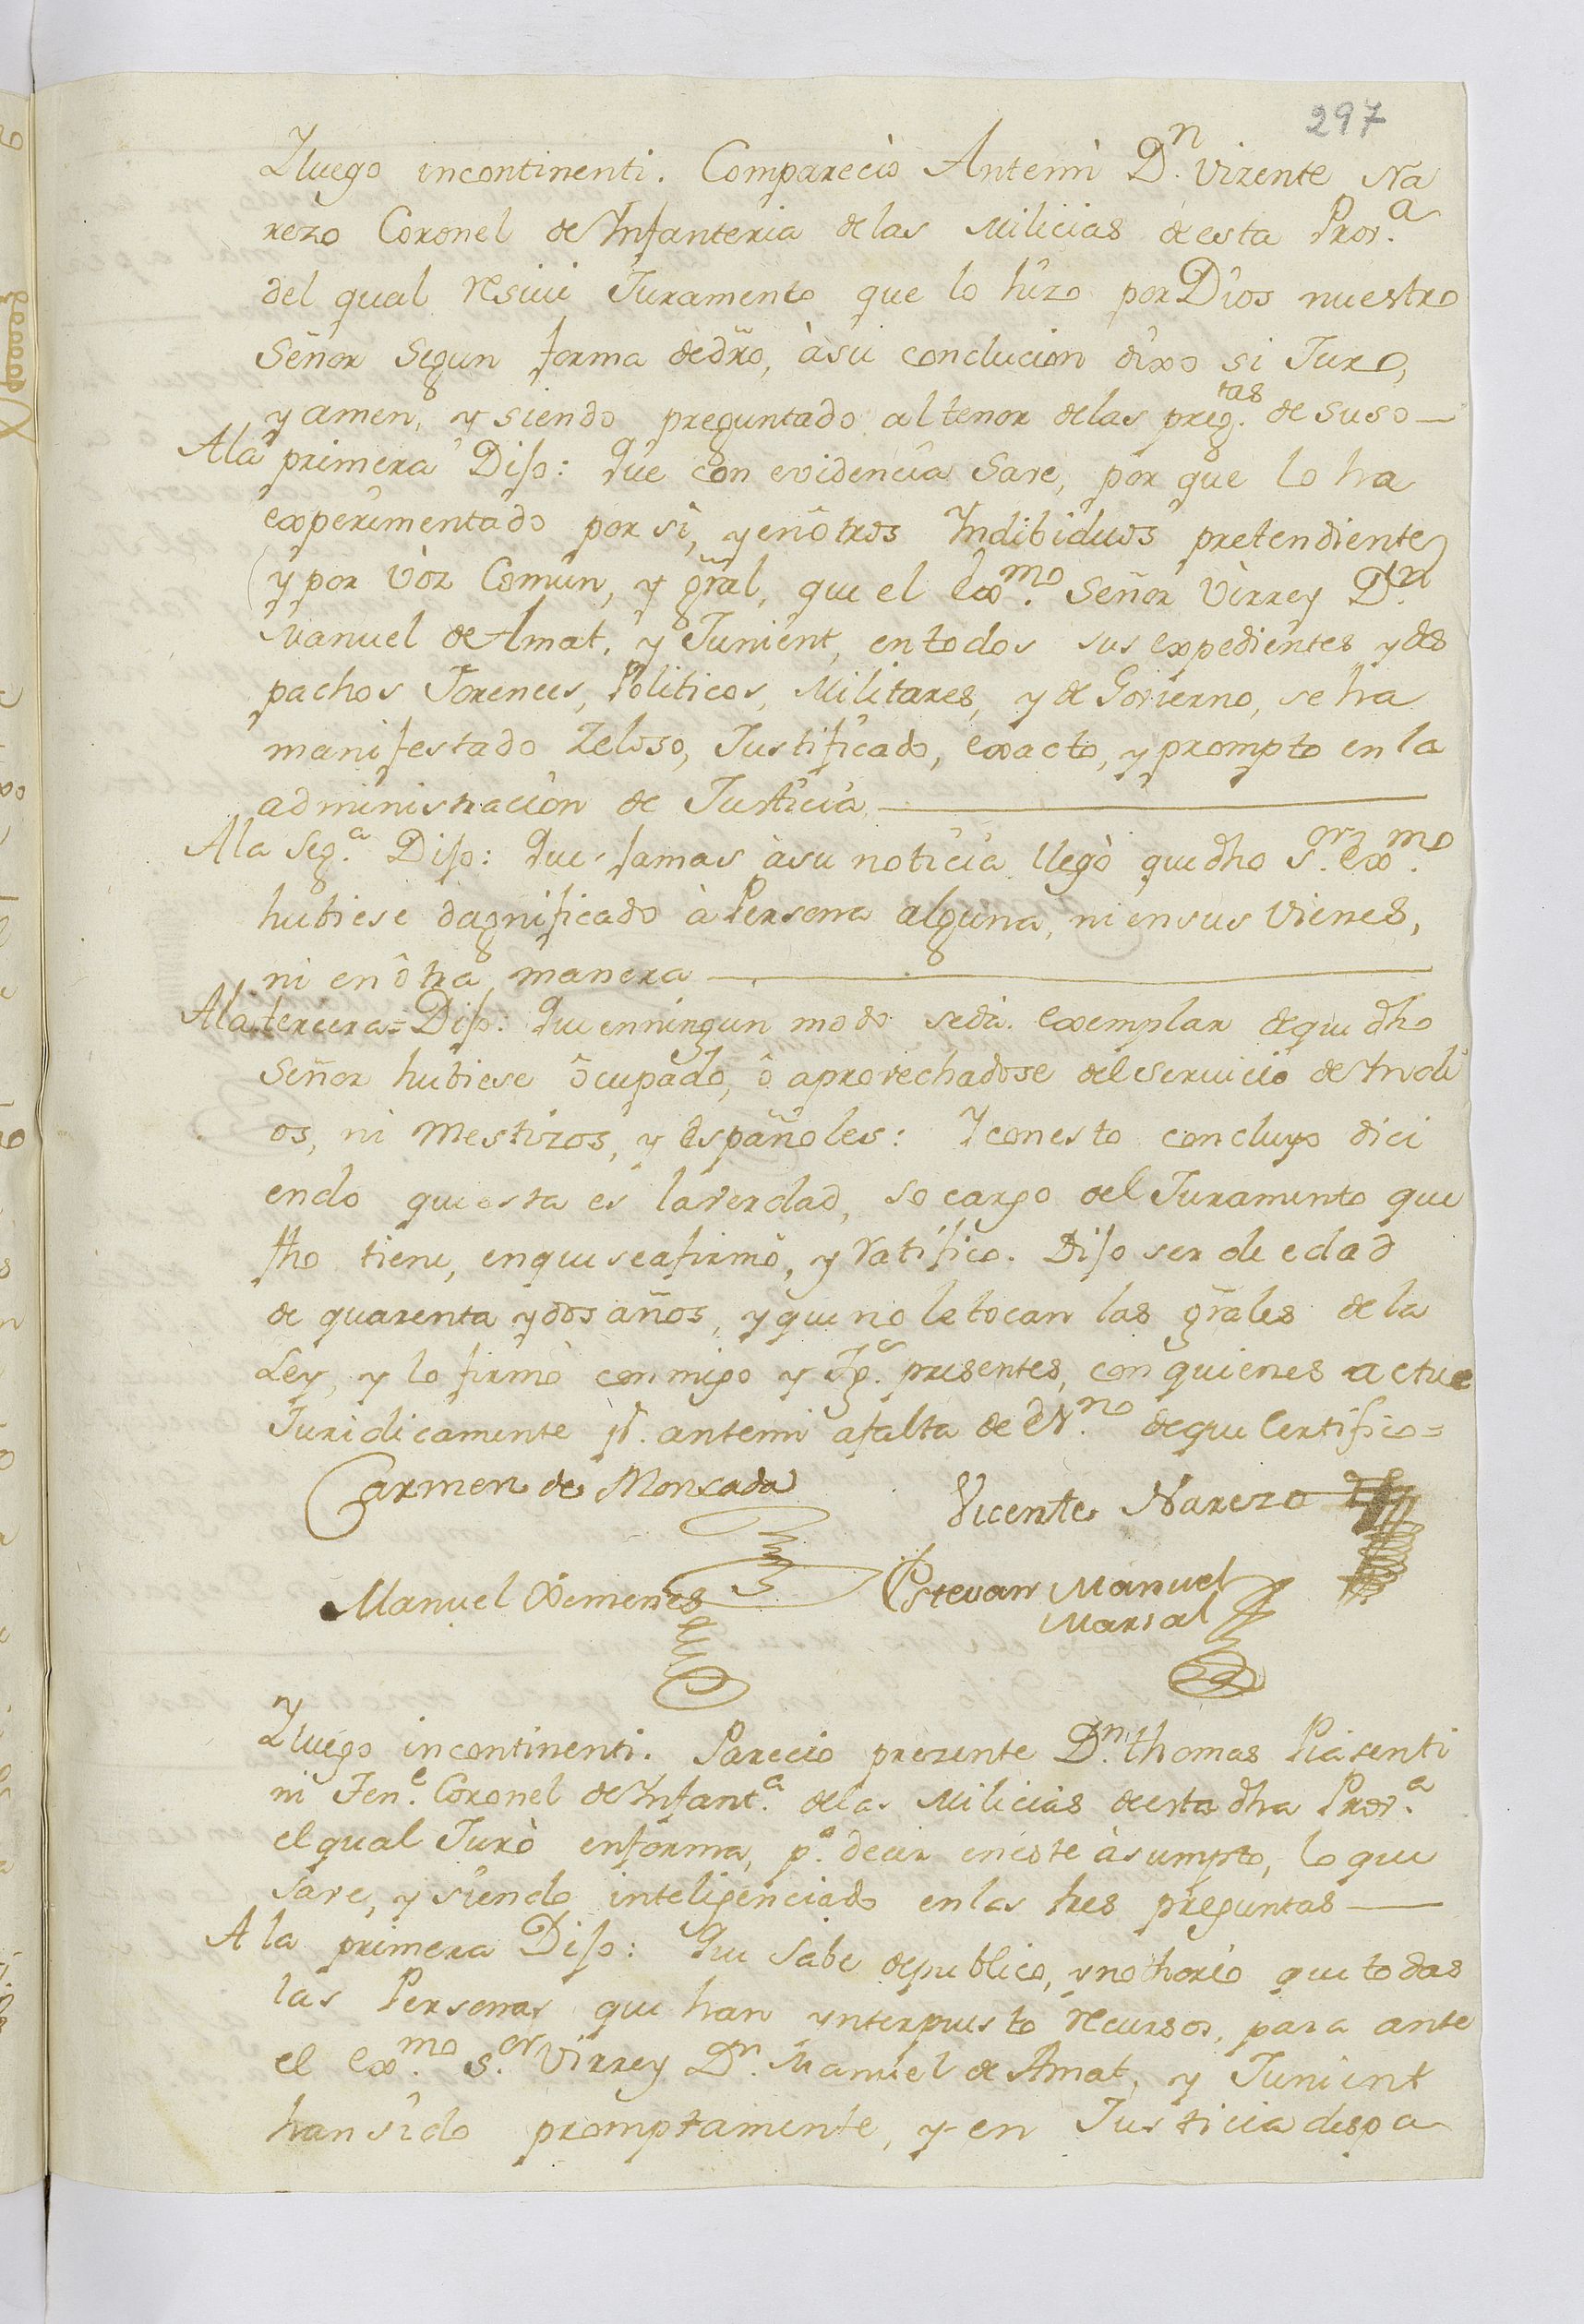 297
Yluego incontinenti. Compareciò Antemi D.n Vizente Na
rezo Coronel de Infanteria delas Milicias de esta Prov.a
del qual resivi Juramento que lo hizo por Dios nuestro
Señor Segun forma dedr̃o, àsu conclucion dixo si Juro,
y amen, y siendo preguntado altenor delas preg.tas de suso—
Ala primera Dijo: Que con evidencia Save, por que lo ha
experimentado por sì, yenôtros Yndibiduos pretendientes
y por vòz Comun, y gr̃al, que el Exmo. Señor Virrey D.n
Manuel de Amat, y Junient, entodos sus expedientes y des
pachos Forences, Politicos, Militares, y de Govierno, se ha
manifestado Zeloso, Justificado, exacto, y prompto en la
administracion de Justicia
Ala Seg.a Dijo: Que Jamas àsu noticia llegò que dho S.or Exmo.
hubiese dagnificado à Persona alguna, ni ensus Vienes,
ni enôtra manera
Ala tercera= Dijo: Que enningun modo sedà exemplar deque dho
Señor hubiese ôcupado, ô aprovechadose del Servicio de Yndi
os, ni Mestizos, y Españoles: Yconesto concluyo dici
endo que esta es laverdad, so cargo del Juramento que
fho tiene, enque seafirmô, y Ratifico. Dijo ser de edad
de quarenta ydos años, y que no le tocan las gr̃ales de la
Ley, y lo firmò conmigo y Tg.s presentes, con quienes actue
Juridicamente p.r antemi afalta de EN.no deque Certifico=
Carmen de Monsada
Vicente Narezo
Manuel Ximenes
Estevan Manuel
Marsal
Yluego incontinenti. Parecio prezente D.n thomas Piasenti
ni Ten.e Coronel de Infant.a delas Milicias deesta dha Prov.a
elqual Jurò enforma, p.a decir eneste àsumpto, lo que
Save, y siendo inteligenciado enlas tres preguntas—
A la primera Dijo: Que Sabe depublico, ynothorio que todas
las Personas que han ynterpuesto recursos, para ante
el Exmo. S.or Virrey D.n Manuel de Amat, y Junient
han sido promptamente, y en Justicia despa